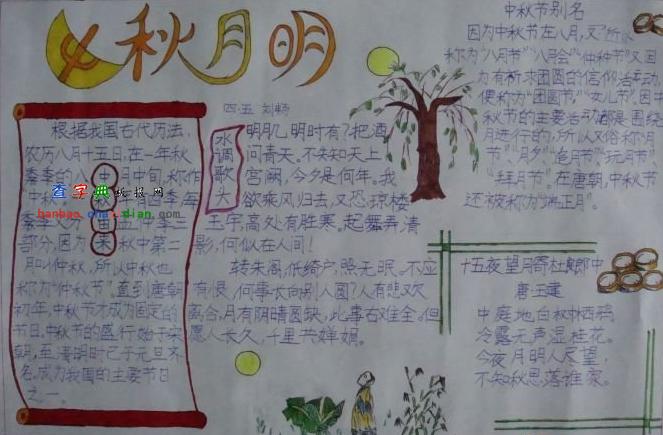 中秋月明
四.五 刘畅
根据我国古代历法,
农历八月十五日,在一年秋
季的八月中旬,称作
中秋
部分,因为 秋中第二
月叫仲秋,所以中秋也
称为“仲秋节”直到唐朝
初年,中秋节才成为固定的
节日,中秋节的盛行始于宋
朝,至清明时已于元旦齐
名,成为我国的主要节日
之一.
水调歌头
明月几时有?把酒
问青天。不知知天上
宫阙,今夕是何年。我
欲乘风归去,又恐琼楼
玉宇,高处有胜寒,起舞弄清
影,何似在人间!
转朱阁,低绮户,照无眠。不应
有恨,何事长向别人圆?人有悲欢
离合,月有阴晴圆缺,此事右难全。但
愿人长久,千里共婵娟。
中秋节别名
因为中秋节在八月,又所以
称为“八月节”“八月会”“仲秋节”又因
为有祈求团圆的信仰活动,
便称为“团圆节”“女儿节”。因中
秋节的主要活动都是围绕
月进行的,所以又俗称“月
节”“月夕”“追月节”“玩月节”
“拜月节”在唐朝,中秋节
还被称为“端正月”
十五夜望月寄杜郎中
唐.王建
中庭地白树中栖鸦
冷露无声湿桂花。
今夜月明人尽望,
不知秋思,落谁家。
查字典手抄报网
hanbao.chazidian.com